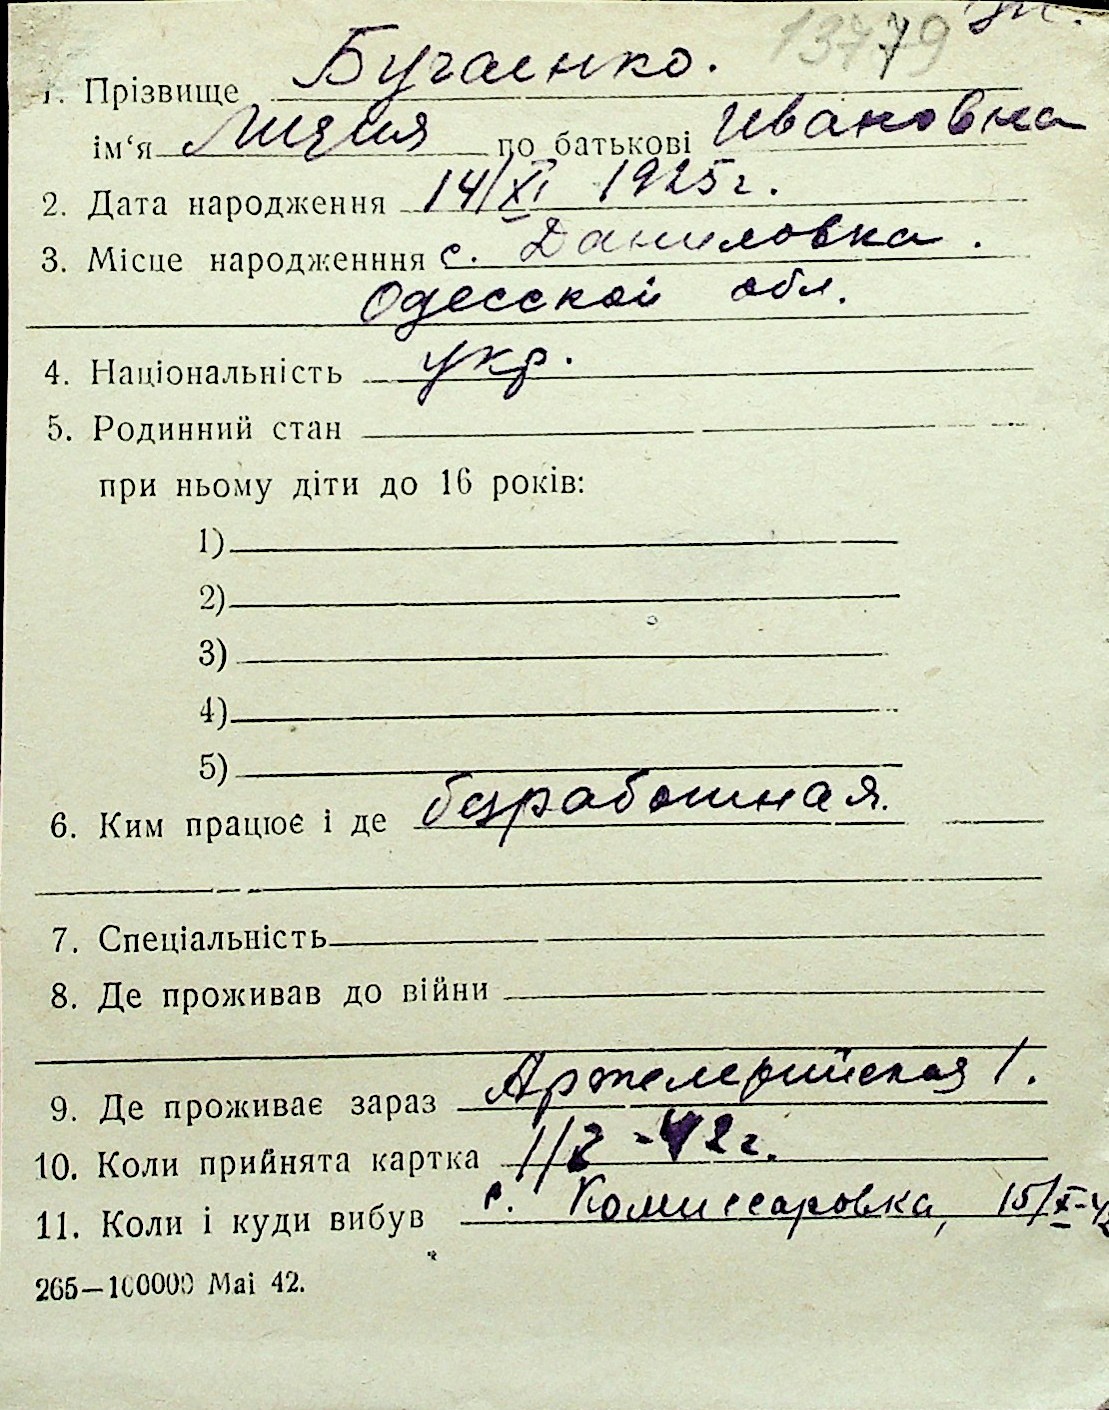 13779
1. Прізвище Бугаенко.
ім‘я Лидия по батькові Ивановна
2. Дата народження 14/XI 1925г.
3. Місце народженння с. Даниловка.
Одесской обл.
4. Національність укр.
5. Родинний стан
при ньому діти до 16 років:
1)
2)
3)
4)
5)
6. Ким працює і де безработная.
7. Спеціальність
8. Де проживав до війни
9. Де проживає зараз Артилерийская 1.
10. Коли прийнята картка -42г.
11. Коли і куди вибув с. Комиссаровка, 15/X-42
265—100000 Mai 42.